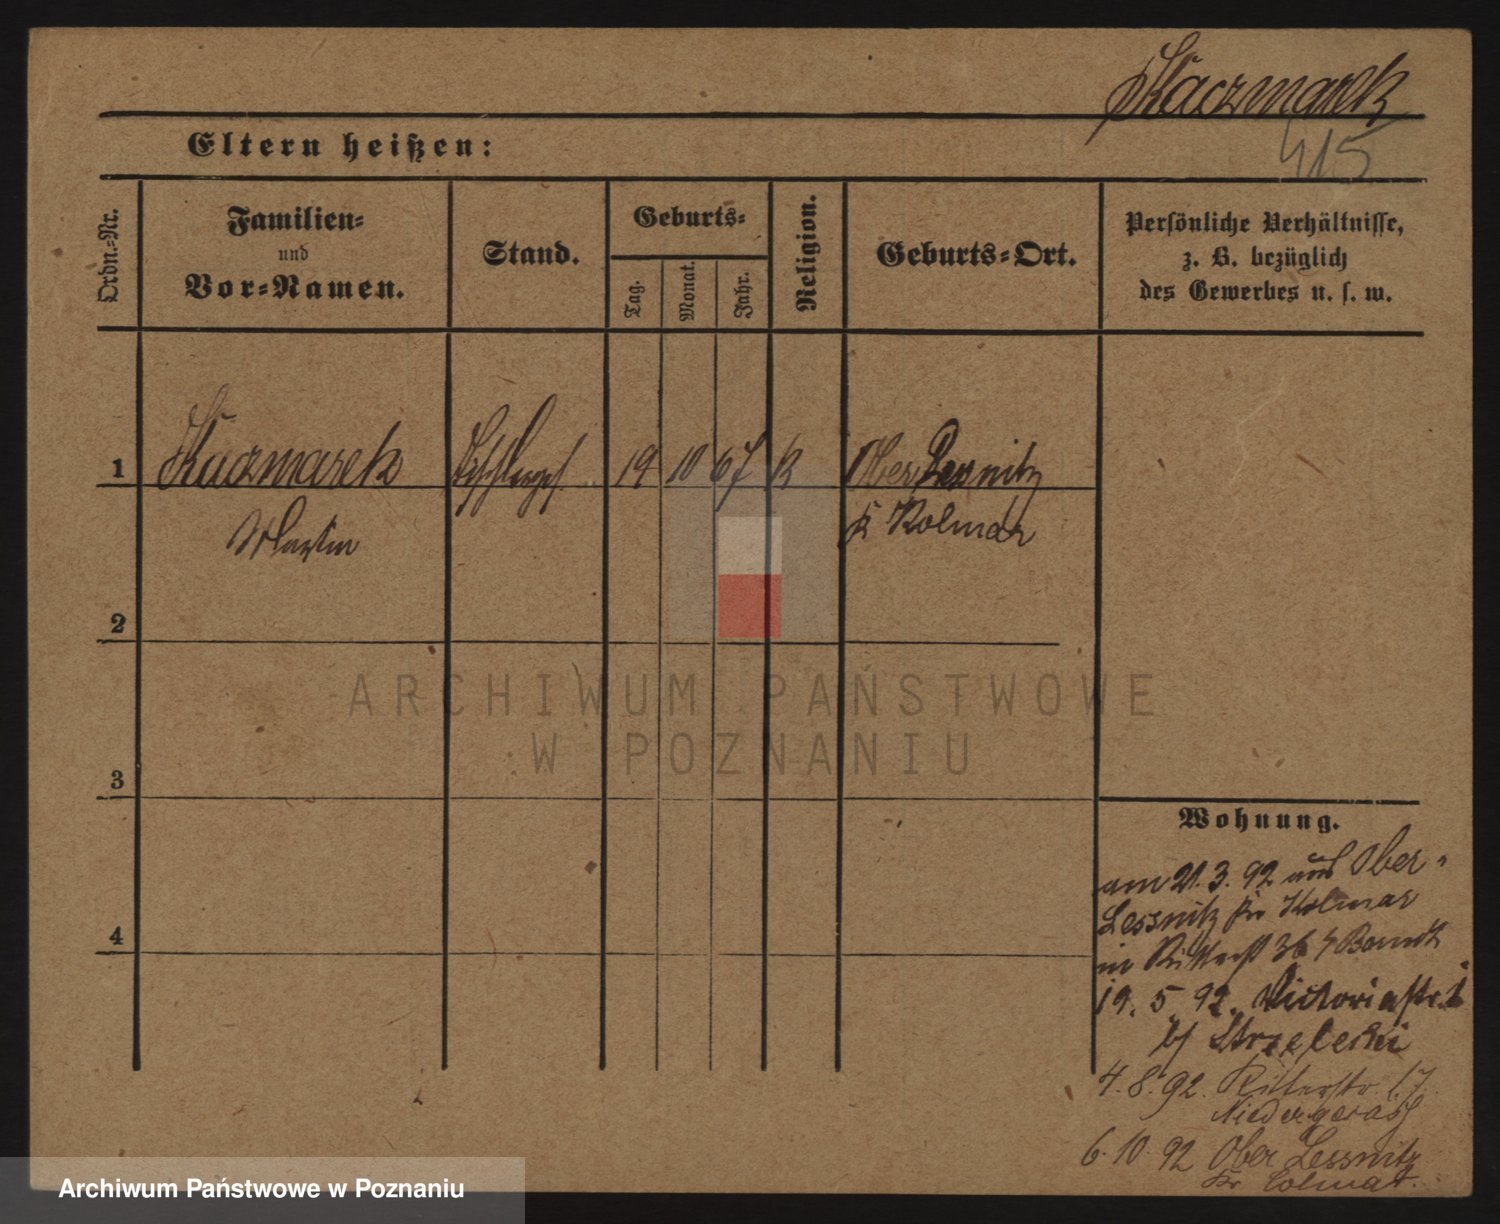 Kaczmarek
415
Eltern heißen:
Ordn.=Nr.
Familien=
und
Vor=Namen.
Stand.
Geburts=
Tag.
Monat.
Jahr.
Religion.
Geburts=Ort.
Persönliche Verhältnisse,
z. B. bezüglich
des Gewerbes u. s. w.
1
Kaczmarek
19 10 67 K
Ober Lessnitz
Martin
K Kolmar
2
ARCHIWUM PAŃSTWOWE
W POZNANIU
3
Wohnung.
am 21.3.92 aus Ober-
Lessnitz Kr Kolmar
in Ritterst 36
4
19.5.92. Victoriastr.
b/ Strzelecki
4.8.92. Ritterstr. 17
6.10.92 Ober Lessnitz
Kr Colmar.
Archiwum Państwowe w Poznaniu